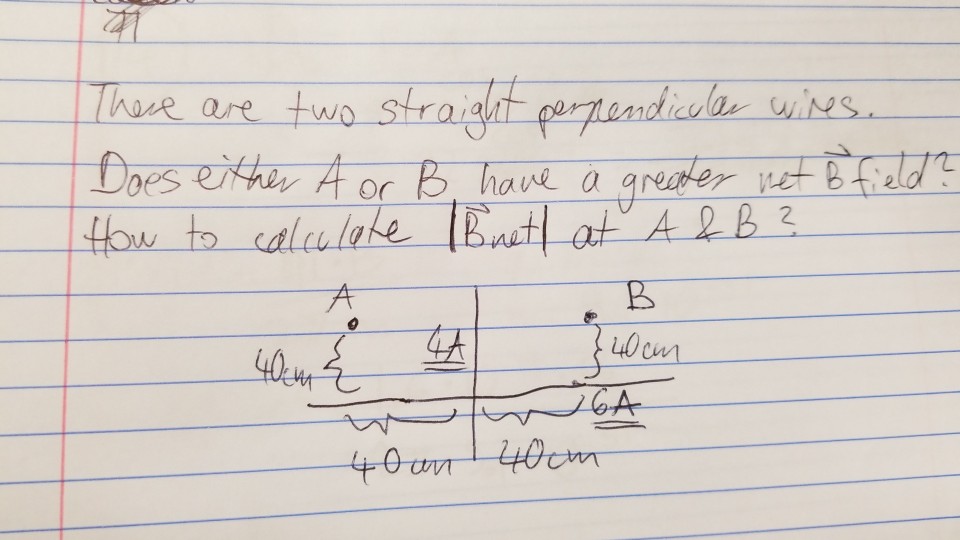 There are two straight perpendicular wires.
Does either A or B have a greater net B⃗ field?
How to calculate |B⃗net| at A & B?
A B
40cm 4A 40cm
6A
40cm 40cm